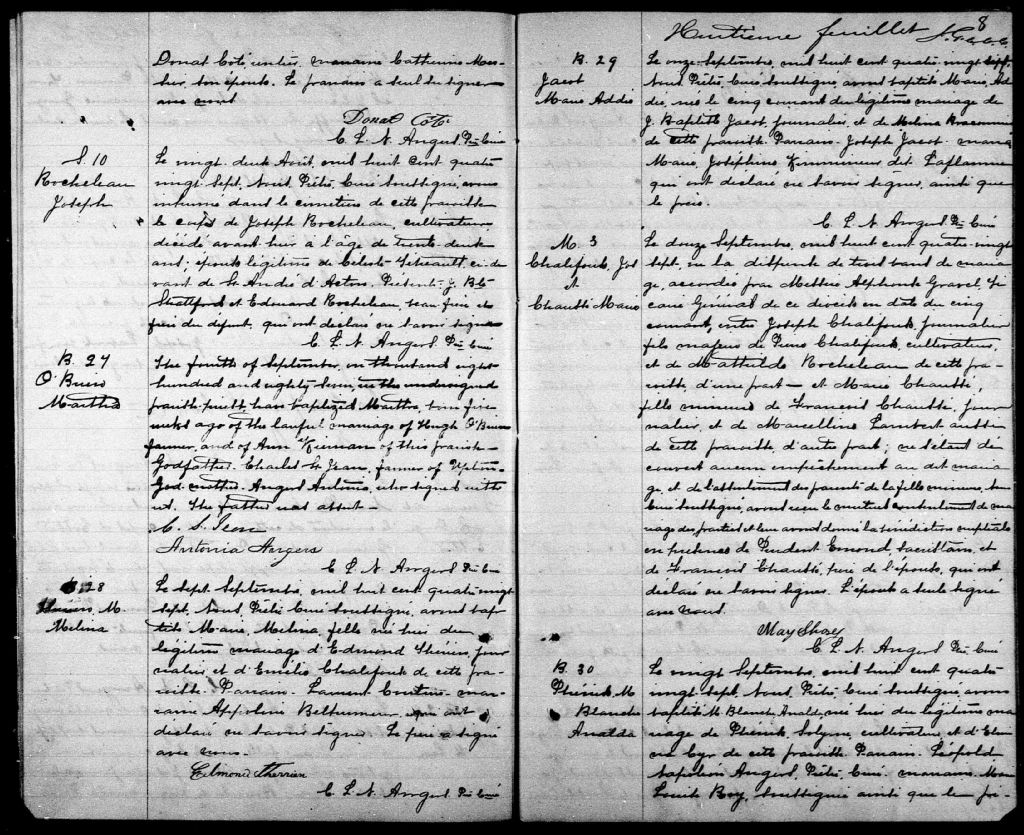 Donat Coté, under, marraine Catherine Mos-
her, son épouse. Le parrain a seul su signer
avec nous
Donat Coté
C. L. N. Angers Ptre Curé
S. 10
Rocheleau
Joseph
Le vingt deux Août, mil huit cent quatre
vingt sept, Nous, Prêtre, Curé soussigné, avons
inhumé dans le cimetière de cette paroisse
le corps de Joseph Rocheleau, cultivateur,
décédé avant hier à l'âge de trente deux
ans; époux légitime de Céleste Tétreault, ci-de-
vant de St André d'Acton. Présents J. Bte
Stratford et Edouard Rocheleau, beau frère et
frère du défunt, qui ont déclaré ne savoir signer
C. L. N. Angers Ptre Curé
B. 27
O'Brien
Martha
The fourth of September, on thousand eight
hundred and eighty seven, we the undersigned
parish priest, have baptized Martha, born five
weeks ago of the lawful marriage of Hugh O'Brien
farmer, and of Ann Kiernan of this parish
Godfather Charles St Jean, farmer of Upton
God mother Angers Antonia, who signed with
us. The father was absent
C. S. Jean
Antonia Angers
C. L. N. Angers Ptre Curé
B. 28
Therrien, M.
Melina
Le sept Septembre, mil huit cent quatre vingt
sept, Nous, Prêtre Curé soussigné, avons bap-
tisé Marie, Melina, fille née hier du
légitime mariage d'Edmond Therrien, jour-
nalier, et d'Emélie Chalifoux de cette pa-
roisse. Parrain Laurent mar-
raine Appoline qui ont
déclaré ne savoir signer. Le père a signé
avec nous.
Edmond Therrien
C. L. N. Angers Ptre Curé
8
Huitième feuillet
B. 29
Jacot
Marie Addée
Le onze Septembre, mil huit cent quatre vingt sept,
Nous, Prêtre, Curé, soussigné, avons baptisé Marie, Ad-
dée, née le cinq courant du légitime mariage de
J. Baptiste Jacot, journalier, et de Melina
de cette paroisse Parrain Joseph Jacot marraine
Marie, Josephine, dit Laflamme
qui ont déclaré ne savoir signer, ainsi que
le père.
C. L. N. Angers Ptre Curé
M. 3
Chalifoux, Jos
et
Chaussé Marie
Le douze Septembre, mil huit cent quatre vingt
sept, vu la dispense de trois bans de maria-
ge, accordée par Messire Alphonse Gravel, Vi-
caire Général de ce diocèse en date du cinq
courant, entre Joseph Chalifoux, journalier
fils majeur de Pierre Chalifoux, cultivateur,
et de Mathilde Rocheleau de cette pa-
roisse, d'une part et Marie Chaussé,
fille mineure de Francois Chaussé, jour-
nalier, et de Marcelline Lambert aussi
de cette paroisse, d'autre part; ne s'étant dé-
couvert aucun empêchement au dit maria-
ge, et de l'assentiment des parents de la fille mineure, Nous
Curé soussigné, avons reçu le mutuel consentement de ma-
riage des parties et leur avons donné la bénédiction nuptiale
en présence de Prudent Emond, sacristain, et
de Francois Chaussé, père de l'épouse, qui ont
déclaré ne savoir signer. L'épouse a seule signé
avec nous.
May Shosy
C. L. N. Angers Ptre Curé
B. 30
Phénix M.
Blanche
Analda
Le vingt Septembre, mil huit cent quatre
vingt sept, Nous, Prêtre, Curé soussigné, avons
baptisé M. Blanche, Analda, née hier du légitime ma-
riage de Phénix Solyme, cultivateur, et d'Elmi-
re Cyr de cette paroisse Parrain Léopold
Napoléon Angers, Prêtre Curé, marraine, Marie
Louise Roy, soussignés ainsi que le pè-